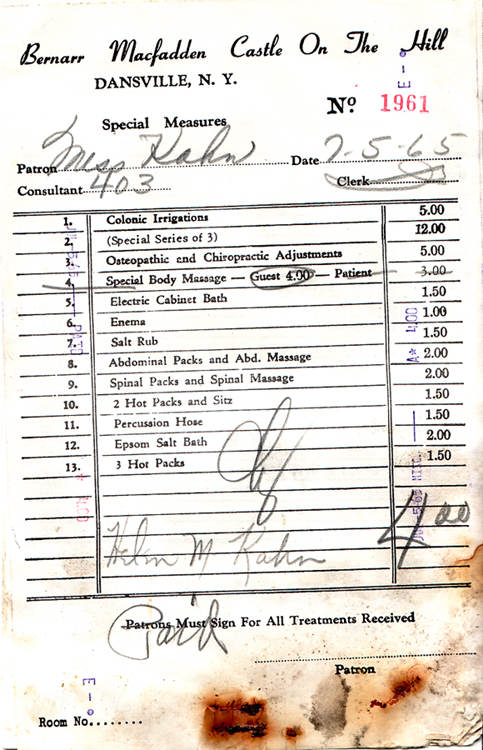 Bernarr Macfadden Castle On The Hill
DANSVILLE, N. Y.
Nº 1961
Special Measures
Patron Miss Kahn Date 7-5-65
Consultant 403 Clerk
1. Colonic Irrigations 5.00
2. (Special Series of 3) 12.00
3. Osteopathic and Chiropractic Adjustments 5.00
4. Special Body Massage — Guest 4.00 — Patient 3.00
5. Electric Cabinet Bath 1.50
6. Enema 1.00
7. Salt Rub 1.50
8. Abdominal Packs and Abd. Massage 2.00
9. Spinal Packs and Spinal Massage 2.00
10. 2 Hot Packs and Sitz 1.50
11. Percussion Hose 1.50
12. Epsom Salt Bath 2.00
13. 3 Hot Packs 1.50
4 00
Helen M Kahn
Paid
Patrons Must Sign For All Treatments Received
Patron
Room No.